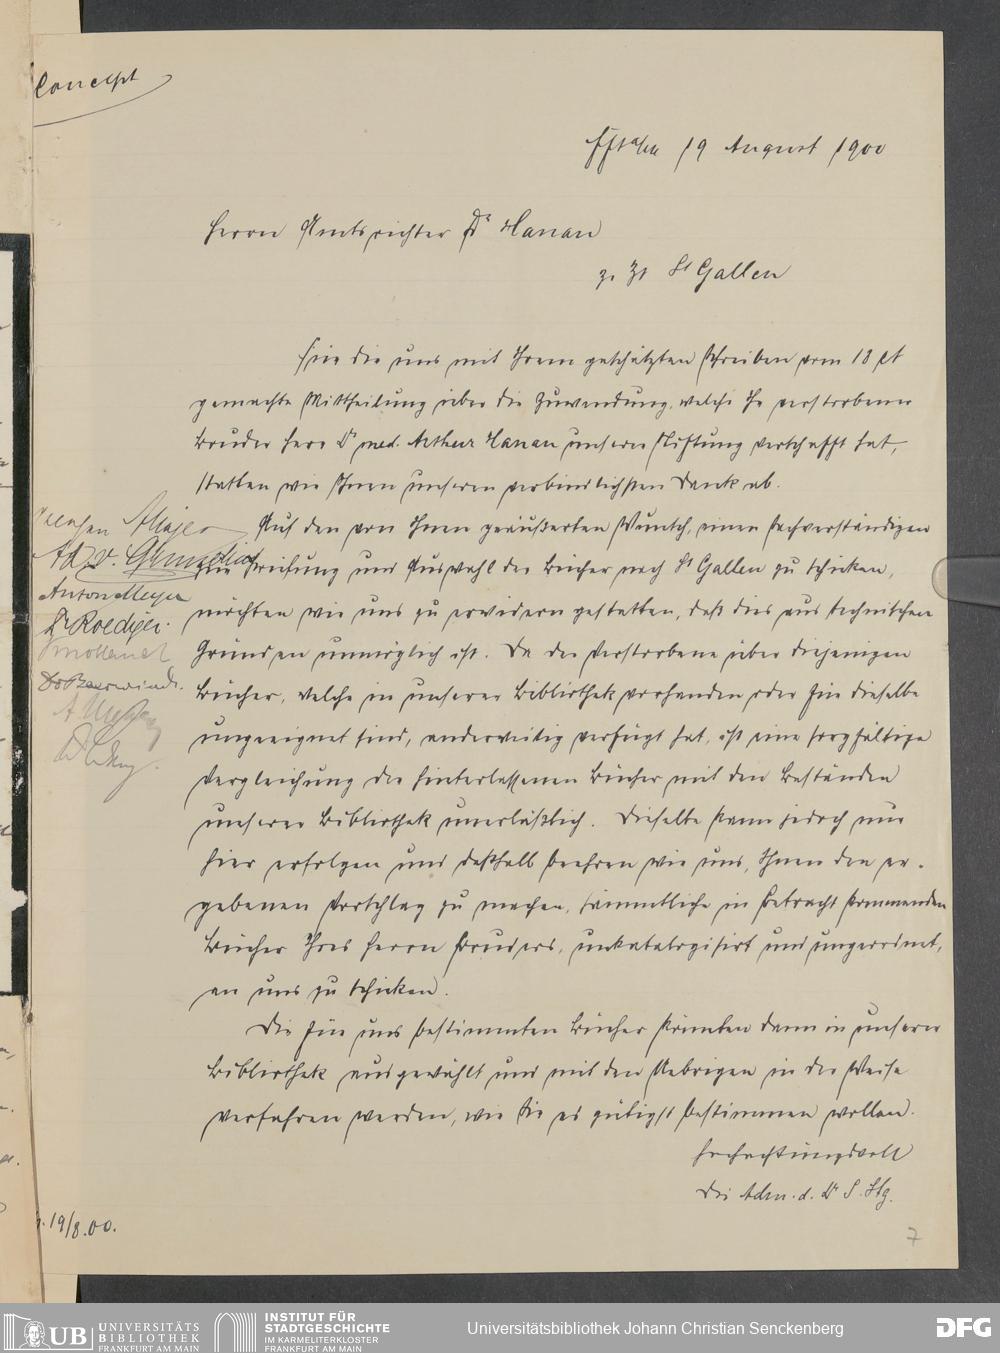 Concept
Fft a/M 19 August 1900
Herrn Amtsrichter Dr Hanau
z. Zt St Gallen
Für die uns mit Ihrem geschätzten Schreiben vom 18 ct
gemachte Mittheilung über die Zuwendung, welche Ihr verstorbener
Bruder Herr Dr med. Arthur Hanau unserer Stiftung verschafft hat,
statten wir Ihnen unseren verbindlichsten Dank ab.
Auf den von Ihnen geäußerten Wunsch, einen Sachverständigen
zur Prüfung und Auswahl der Bücher nach St Gallen zu schicken,
möchten wir uns zu erwidern gestatten, daß dies aus technischen
Gründen unmöglich ist. Da der Verstorbene über diejenigen
Bücher, welche in unserer Bibliothek vorhanden oder für dieselbe
ungeeignet sind, anderweitig verfügt hat, ist eine sorgfältige
Vergleichung der hinterlassenen Bücher mit den Beständen
unserer Bibliothek unerläßlich. Dieselbe kann jedoch nur
hier erfolgen und deßhalb beehren wir uns, Ihnen den er-
gebenen Vorschlag zu machen, sämmtliche in Betracht kommenden
Bücher Ihres Herrn Bruders, unkatalogisirt und ungeordnet,
an uns zu schicken.
Die für uns bestimmten Bücher könnten dann in unserer
Bibliothek ausgewählt und mit den Uebrigen in der Weise
verfahren werden, wie Sie es gütigst bestimmen wollen.
Hochachtungsvoll
Die Adm. d. Dr S. Stg.
gelesen AMajer
Ad. v.
Anton Meyer
Dr Roediger.
Dr Baerwindt.
19/8.00.
7
UB UNIVERSITÄTS
BIBLIOTHEK
FRANKFURT AM MAIN
INSTITUT FÜR
STADTGESCHICHTE
IM KARMELITERKLOSTER
FRANKFURT AM MAIN
Universitätsbibliothek Johann Christian Senckenberg
DFG